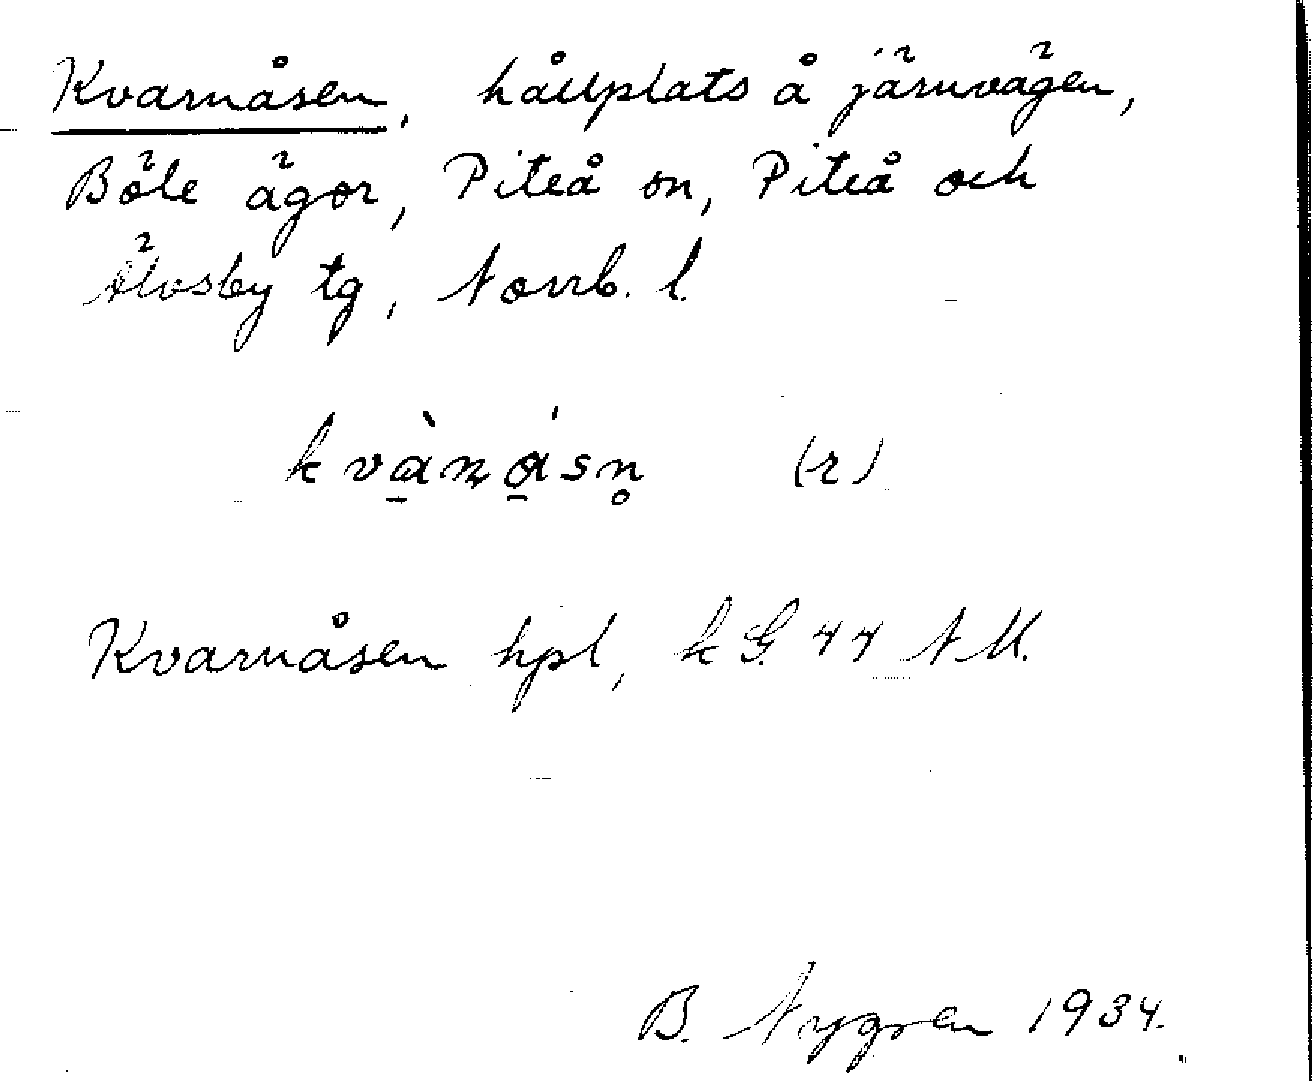 Kvarnåsen, hållplats å järnvägen,
Böle ägor, Piteå sn, Piteå och
Älvsby tg, Norrb. l.
kvànásn̥ (r)
Kvarnåsen hpl, k G. 44 NU.
B. Nygren 1934.